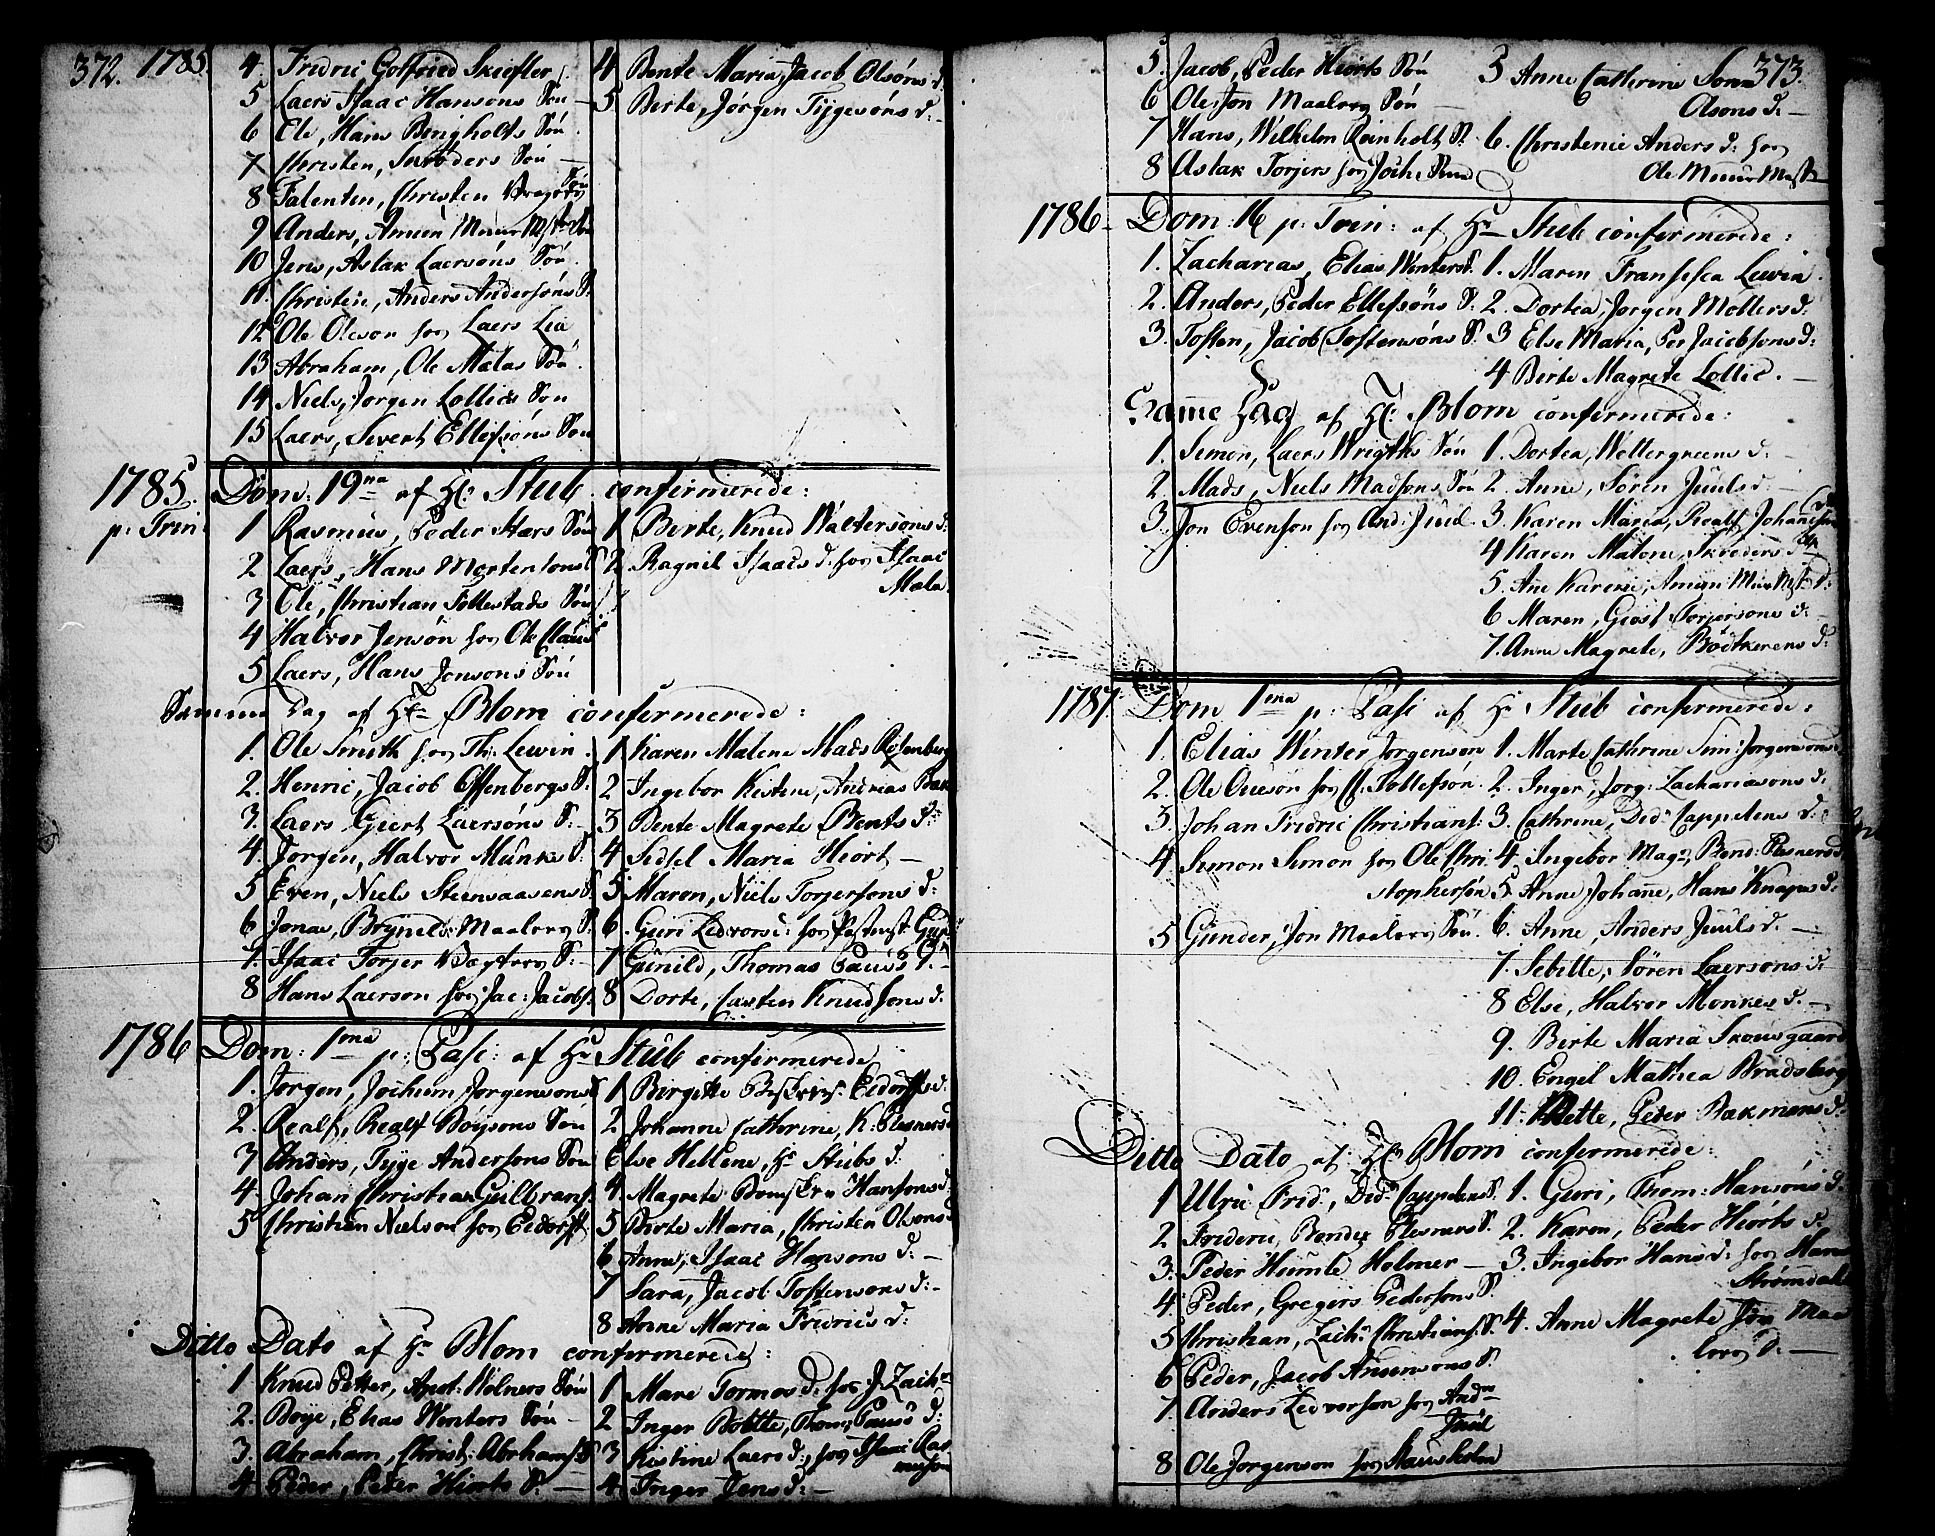 372. 1785.
4. Fridric Gotfried Skiefler
5 Laers Isaac Hansons Søn
6 Ole, Hans Bingholts Søn
7 Christen, Snröders Søn
8 Falenten, Christen Søn
9 Anders, Amun Muur Mst: Søn
10 Jens, Aslak Laersøns Søn
11. Christen, Anders Andersøns S.
12 Ole Oleson hos Laers Lia
13 Abraham, Ole Malas Søn
14 Niels, Jörgen Lollies Søn
15 Laers, Sivert Ellefsøns Søn
4 Bente Maria, Jacob Olsøns d.
5 Berte, Jörgen Tygesøns d:
1785. Dom: 19na af Hr: Stub confermerede:
p: Trin:
1 Rasmus, Peder Stærs Søn
2 Laers, Hans Mortensons S
3 Ole, Christian Follestads Søn
4 Halvor Jensøn hos Ole Claus
5 Laers, Hans Jonsons Søn
1 Berte, Knud Waltersons d:
2 Ragnil Isaacs d: hos Isaac
Mala
Samme Dag af Hr Blom confermerede:
1. Ole Smith hos Th: Lewin
2. Henric, Jacob Effenbergs S:
3. Laers Giert Laersøns S:
4 Jorgen, Halvor Munkes S:
5 Even, Niels Steensaasens S:
6 Jonas, Brynild Maaleroy S:
7. Isaac Torjer S:
8 Hans Laerson hos Jac: Jacobs:
1 Karen Malene Mads Rosenberg
2 Ingebor Kistene, Andreas
3 Bente Magrete Bents d:
4 Sedsel Maria Hiort
5 Maren, Niels Torjersons d:
6. Guri Ledvors d: hos Pastmst:
7 Gunild, Thomas Paus's d.
8 Dorte, Casten Knudsons d.
1786 Dom: 1ma p: Pasc: af Hr Stub confermerede
1. Jorgen, Jochum Jorgensons S
2. Realf, Realf Boysons Søn
3 Anders, Tyge Andersons Søn
4 Johan Christian Gulbrans:
5 Christian Nielson hos Eidorff
1 Birgitte Eidorffs d:
2 Johanne Cathrine, K: Plesners d
Else Hellene, Hr Stubs d:
4. Magrete Hansons d
5 Birte Maria, Christen Olsons d
6 Anne, Isaac Hansons d:
7 Sara, Jacob Tostensons d:
8 Anne Maria Fridrics d:
Ditto Dato af Hr Blom confermerede:
1 Knud Petter, Apot: Wolners Søn
2. Boye, Elias Winters Søn
3. Abraham, Christ: Abrahams S
4 Peder, Peter Hiorts S.
1 Mare Tormos d: hos J. Zach:
2 Inger Bolette, Thom: Paus's d:
3 Kistine Laers d:, hos Isaac Ras
museson
4. Inger Jens d:
373.
5. Jacob, Peder Hiorts Søn
6 Ole, Jon Maaleroy Søn
7 Hans, Wilhelm Reinholt S:
8 Aslak Torjers hos Joch:
5 Anne Catherine Soren
Olsons d.
6. Christenie Anders d: hos
Ole Muur Mst
1786 Dom: 16 p: Trin: af Hr Stub confermerede:
1. Zacharias, Elias Winters S.
2. Anders, Peder Ellefsøns S.
3. Tosten, Jacob Tostensøns S.
1. Maren Fransisca Lewin
2. Dortea, Jorgen Mollers d:
3 Else Maria, Per Jacobsons d:
4 Birte Magrete Lollie.
Samme Dag af Hr: Blom confermerede:
1. Simon, Laers Wrigths Søn
2. Mads, Niels Madsons Søn
3. Jon Evenson hos And: Juul
1. Dortea, Woltergreens d:
2. Anne, Sören Juuls d.
3. Karen Maria, Realf Johannesons
4 Karen Malene, Skreders d
5. Ane Karine, Amun Muur Mst: d:
6 Maren, Giost Torjersons d:
7. Anne Magrete, Bödtkerens d:
1787. Dom 1ma p: Pasc af Hr Stub confermerede:
1. Elias Winter Jorgenson
2. Ole Oveson hos Cl: Tollefsón
3. Johan Fridric Christians:
4 Simon Simon hos Ole Chri
stophersøn
5 Gunder, Jon Maaleroy Søn
1. Marte Cathrine Sim: Jorgensons d
2. Inger, Jorg: Zachariasons d:
3. Cathrine, Did: Cappelens d:
4. Ingebor Mag:, Bend: Plesners d
5. Anne Johanne, Hans Knapes d:
6. Anne, Anders Juuls d.
7. Sebille, Sören Laersons d:
8 Else, Halvor Monkes d.
9. Birte Maria Skousgaard
10. Engel Mathea Bradsberg
11. Mette, Peder Bakmans d:
Ditto Dato af Hr Blom confermerede:
1 Ulric Frid:, Did: Cappelens S.
2 Frideric, Bendix Plesners S.
3. Peder Humle Holmer
4. Peder, Gregers Pedersons S.
5 Christian, Zach: Christians: S.
6 Peder, Jacob Ansensons S.
7. Anders Ledvorson hos And:
Juul
8 Ole Jorgenson hos Klausholm
1. Guri, Thom: Hansons d:
2. Karen, Peder Hiorts d.
3. Ingebor Hans d: hos Hans
Strömdal
4. Anne Magrete Jon Maa
leroy d: